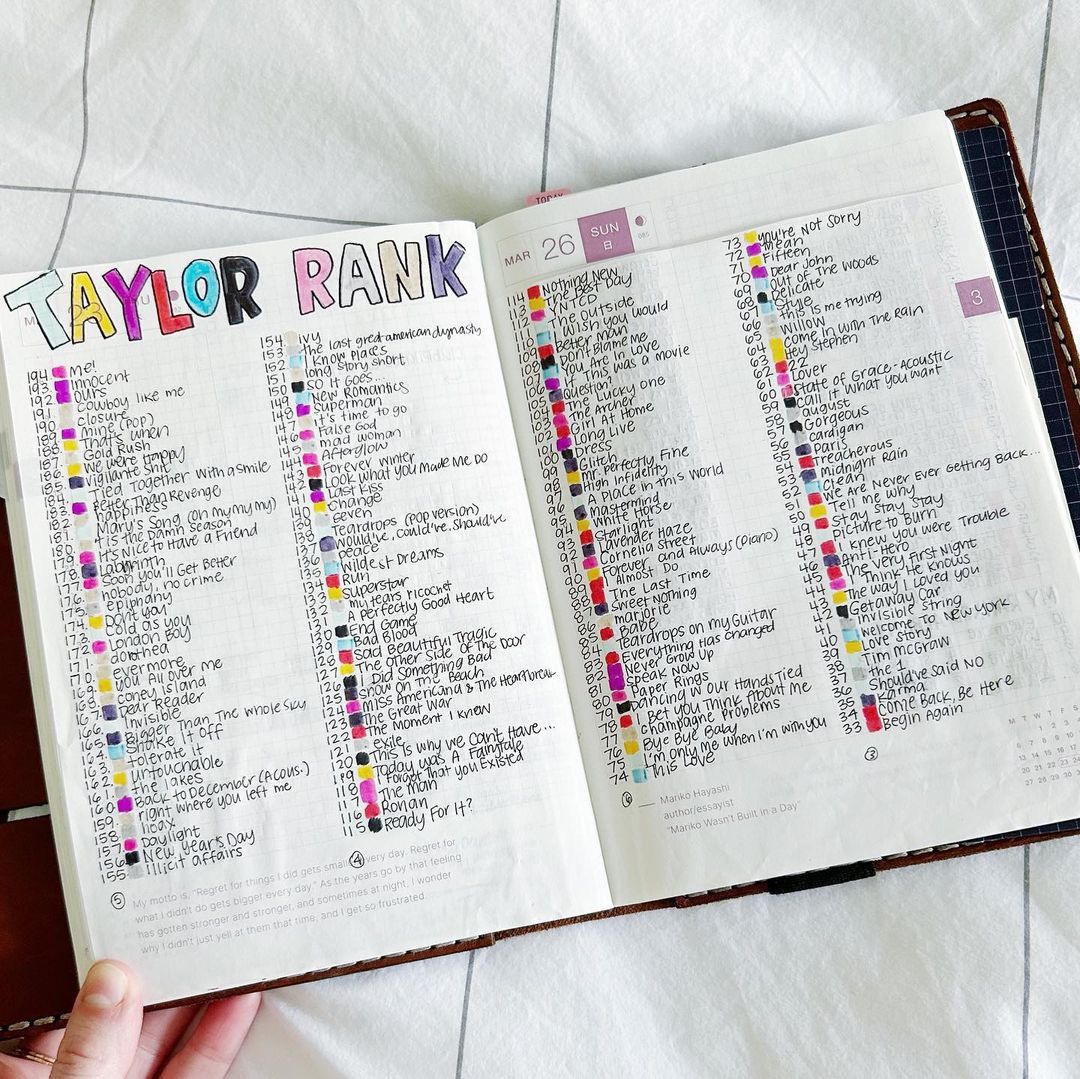 TAYLOR RANK
194. Me!
193. Innocent
192. Ours
191. Cowboy like me
190. Closure
189. Mine (POP)
188. That's when
187. Gold Rush
186. We were Happy
185. Vigilante Shit
184. Tied Together with a smile
183. Better Than Revenge
182. happiness
181. Mary's Song (Oh my my my)
180. tis the Damn season
179. It's Nice to Have a Friend
178. Labyrinth
177. Soon you'll Get Better
176. nobody, no crime
175. epiphany
174. Don't you
173. Cold as you
172. London Boy
171. dorothea
170. evermore
169. you All Over me
168. coney island
167. Dear Reader
166. Invisible
165. Bigger Than The whole sky
164. Shake It Off
163. tolerate it
162. Untouchable
161. the lakes
160. Back to December (Acous.)
159. right where you left me
158. hoax
157. Daylight
156. New Year's Day
155. illicit affairs
154. ivy
153. the last great american dynasty
152. I Know Places
151. long story short
150. SO IT Goes...
149. New Romantics
148. Superman
147. it's time to go
146. False God
145. mad woman
144. Afterglow
143. Forever Winter
142. LOOK what you Made Me DO
141. Last Kiss
140. Change
139. seven
138. Teardrops (POP version)
137. Would've, Could've, Should've
136. peace
135. Wildest Dreams
134. Run
133. Superstar
132. my tears ricochet
131. A Perfectly Good Heart
130. End Game
129. Bad Blood
128. Sad Beautiful Tragic
127. The Other Side Of The Door
126. I Did Something Bad
125. Snow on The Beach
124. Miss Americana & The Heartbreak
123. The Great War
122. The Moment I Knew
121. exile
120. This is why we can't Have...
119. Today was A Fairytale
118. I Forget that you Existed
117. The Man
116. Ronan
115. Ready For It?
5
4
My motto is, "Regret for things I did gets small every day. Regret for
what I didn't do gets bigger every day." As the years go by that feeling
has gotten stronger and stronger, and sometimes at night, I wonder
why I didn't just yell at them that time, and I get so frustrated.
TODAY
MAR 26 SUN
日
085
3
114. Nothing New
113. The Best Day
112. YNTCD
111. The Outside
110. I wish you would
109. Better Man
108. Don't Blame Me
107. you Are in Love
106. If This was a movie
105. Question
104. The Lucky One
103. The Archer
102. Girl At Home
101. Long Live
100. Dress
99. Glitch
98. Mr. Perfectly Fine
97. High infidelity
96. A Place in This World
95. Mastermind
94. White Horse
93. Starlight
92. Lavender Haze
91. Cornelia Street
90. Forever and Always (Piano)
89. I Almost Do
88. The Last Time
87. Sweet Nothing
86. marjorie
85. Babe
84. Teardrops on my Guitar
83. Everything Has Changed
82. Never Grow Up
81. Speak Now
80. Paper Rings
79. Dancing W Our Hands Tied
78. I Bet you Think About Me
77. Champagne Problems
76. Bye Bye Baby
75. I'm only Me when I'm with you
74. This Love
73. you're Not Sorry
72. Mean
71. Fifteen
70. Dear John
69. Out of The Woods
68. Delicate
67. Style
66. this is me trying
65. Willow
64. Come In With The Rain
63. Hey Stephen
62. 22
61. Lover
60. State of Grace-Acoustic
59. Call it what you want
58. august
57. Gorgeous
56. cardigan
55. Paris
54. Treacherous
53. Midnight Rain
52. Clean
51. We Are Never Ever Getting Back...
50. Tell me why
49. Stay Stay Stay
48. Picture to Burn
47. I Knew you were Trouble
46. Anti-Hero
45. The Very First Night
44. I Think He Knows
43. The way I Loved you
42. Getaway Car
41. invisible string
40. Welcome To New York
39. Love Story
38. Tim McGraw
37. the 1
36. Should've said NO
35. Karma
34. Come Back, Be Here
33. Begin Again
6
3
Mariko Hayashi
author/essayist
"Mariko Wasn't Built in a Day"
M T W T F S